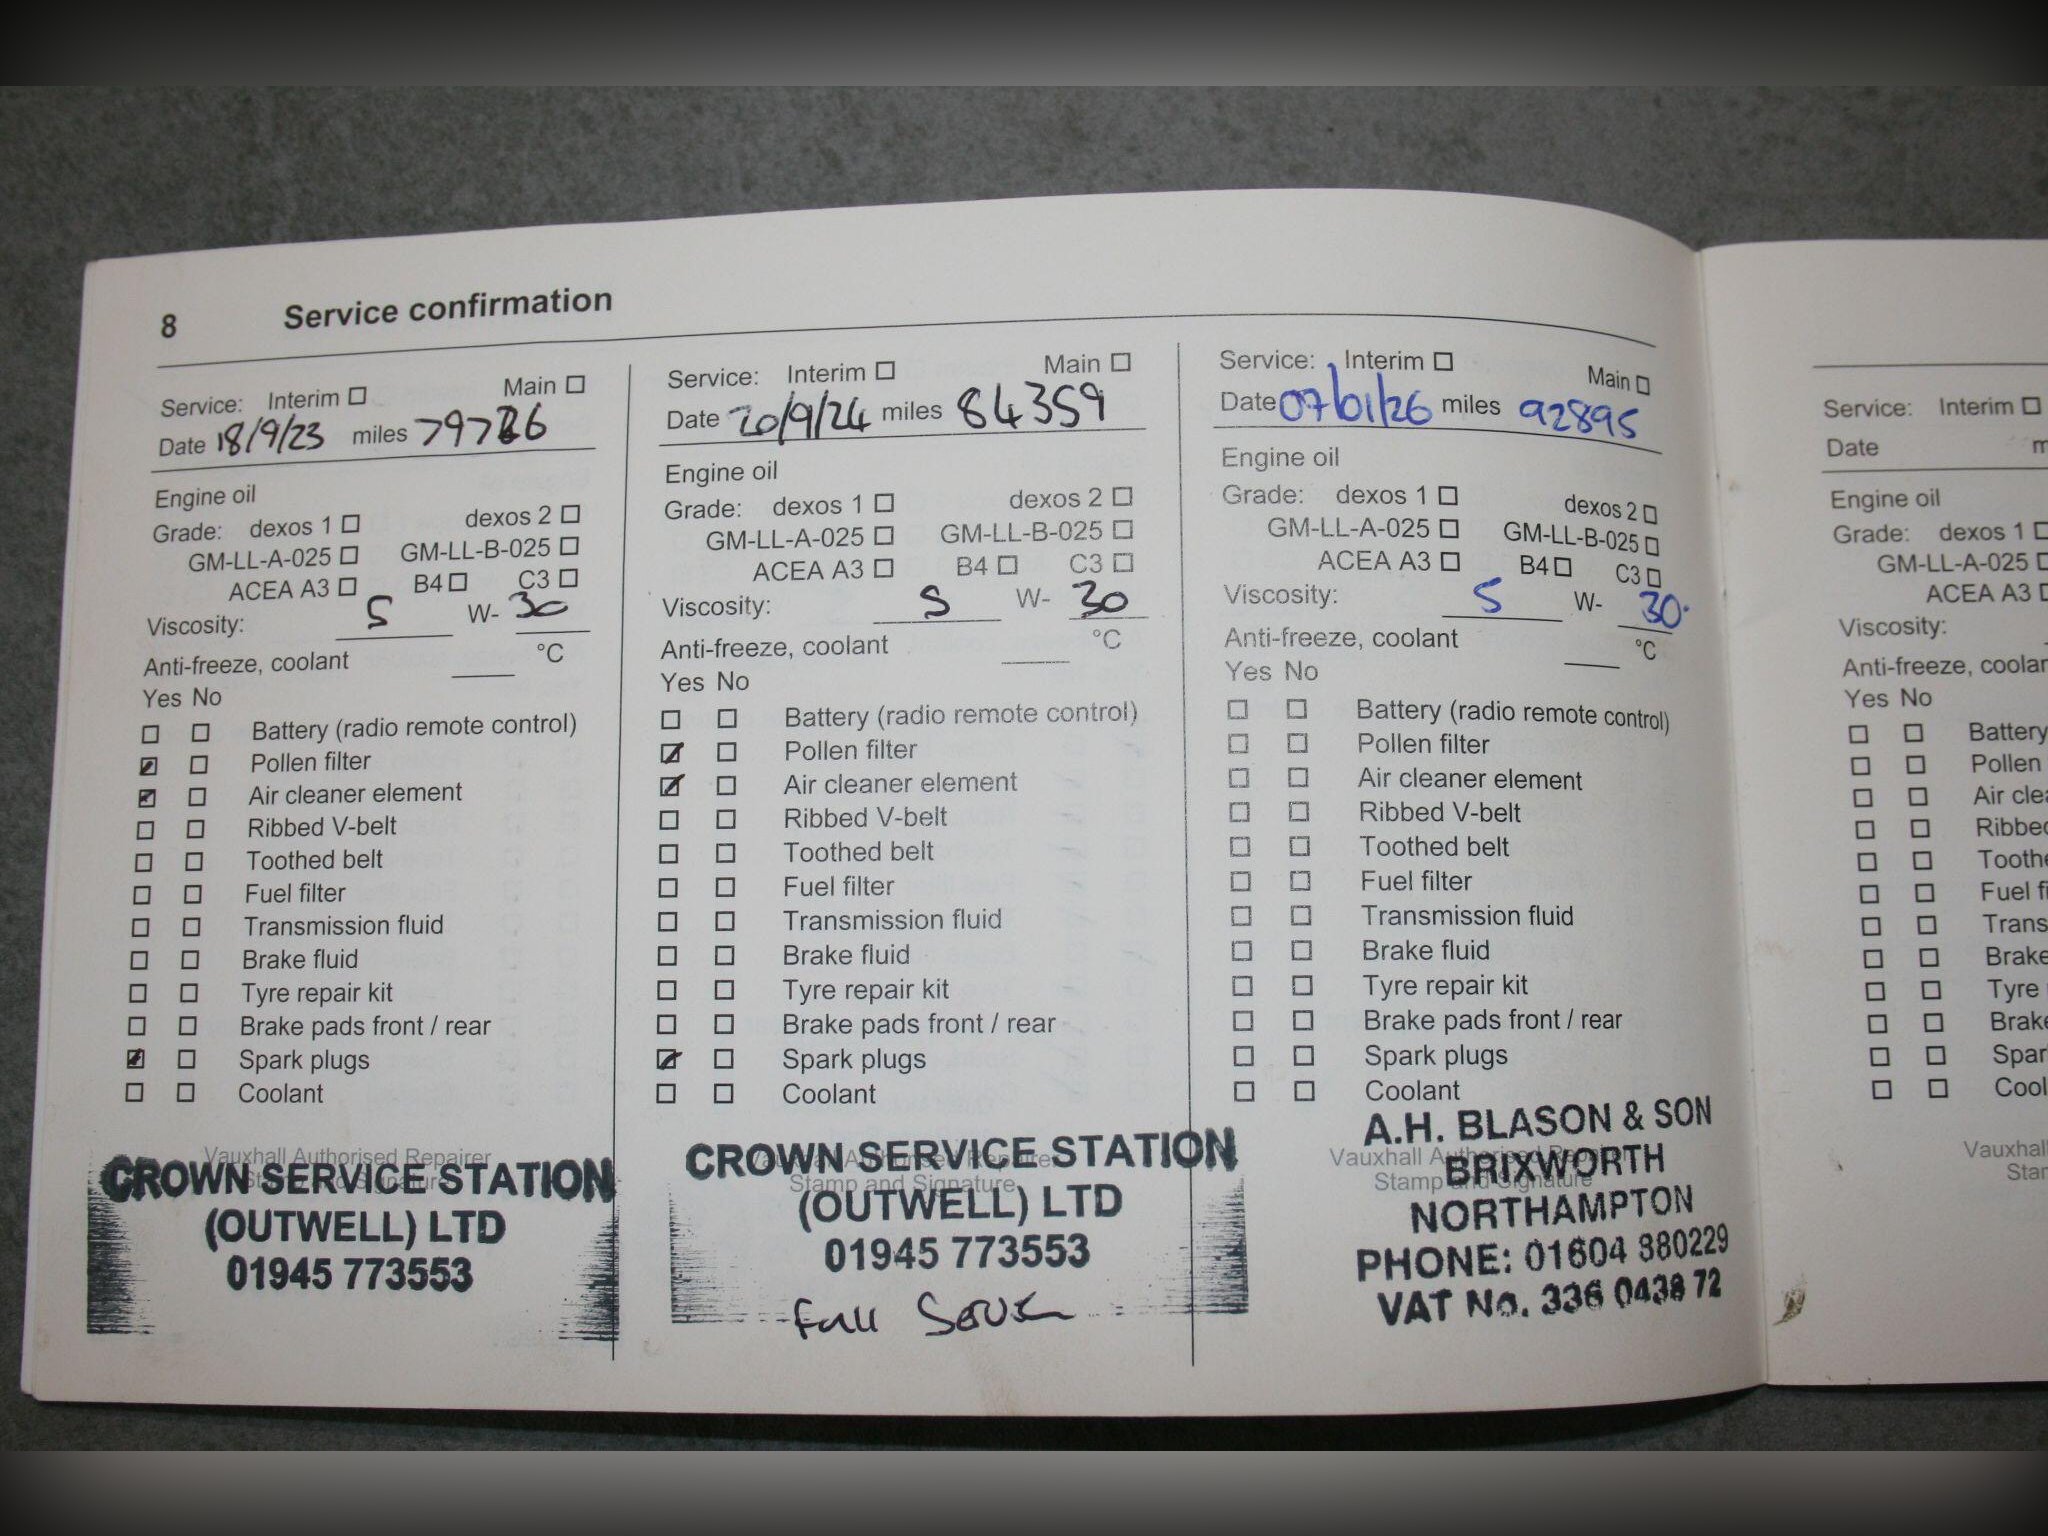 8 Service confirmation
Service: Interim Main
Date 18/9/23 miles
Engine oil
Grade: dexos 1 dexos 2
GM-LL-A-025 GM-LL-B-025
ACEA A3 B4 C3
Viscosity: 5 W- 30
Anti-freeze, coolant °C
Yes No
Battery (radio remote control)
Pollen filter
Air cleaner element
Ribbed V-belt
Toothed belt
Fuel filter
Transmission fluid
Brake fluid
Tyre repair kit
Brake pads front / rear
Spark plugs
Coolant
Vauxhall Authorised Repairer
Stamp and Signature
CROWN SERVICE STATION
(OUTWELL) LTD
01945 773553
Service: Interim Main
Date 20/9/24 miles 84359
Engine oil
Grade: dexos 1 dexos 2
GM-LL-A-025 GM-LL-B-025
ACEA A3 B4 C3
Viscosity: 5 W- 30
Anti-freeze, coolant °C
Yes No
Battery (radio remote control)
Pollen filter
Air cleaner element
Ribbed V-belt
Toothed belt
Fuel filter
Transmission fluid
Brake fluid
Tyre repair kit
Brake pads front / rear
Spark plugs
Coolant
Vauxhall Authorised Repairer
Stamp and Signature
CROWN SERVICE STATION
(OUTWELL) LTD
01945 773553
Full
Service: Interim Main
Date 07/01/26 miles 92895
Engine oil
Grade: dexos 1 dexos 2
GM-LL-A-025 GM-LL-B-025
ACEA A3 B4 C3
Viscosity: 5 W- 30
Anti-freeze, coolant °C
Yes No
Battery (radio remote control)
Pollen filter
Air cleaner element
Ribbed V-belt
Toothed belt
Fuel filter
Transmission fluid
Brake fluid
Tyre repair kit
Brake pads front / rear
Spark plugs
Coolant
Vauxhall Authorised Repairer
Stamp and Signature
A.H. BLASON & SON
BRIXWORTH
NORTHAMPTON
PHONE: 01604 880229
VAT No. 336 0438 72
Service: Interim
Date m
Engine oil
Grade: dexos 1
GM-LL-A-025
ACEA A3
Viscosity:
Anti-freeze, coolan
Yes No
Battery
Pollen
Air clea
Ribbed
Toothe
Fuel fi
Trans
Brake
Tyre
Brake
Spar
Cool
Vauxhall
Stam